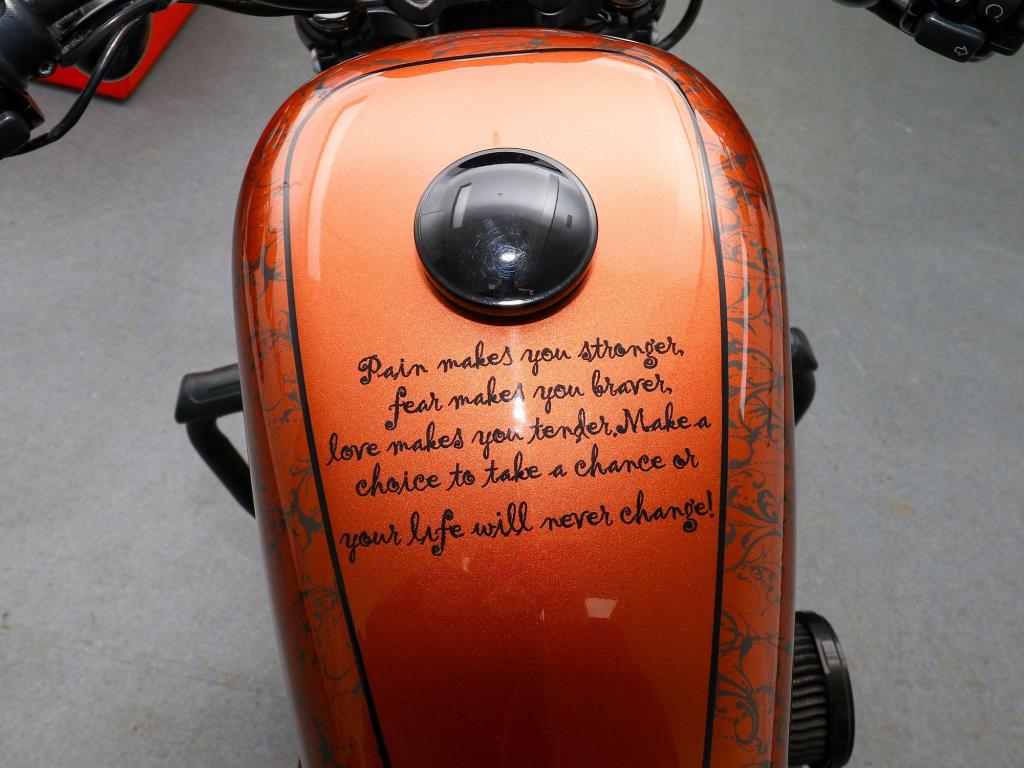 Pain makes you stronger,
fear makes you braver,
love makes you tender. Make a
choice to take a chance or
your life will never change!